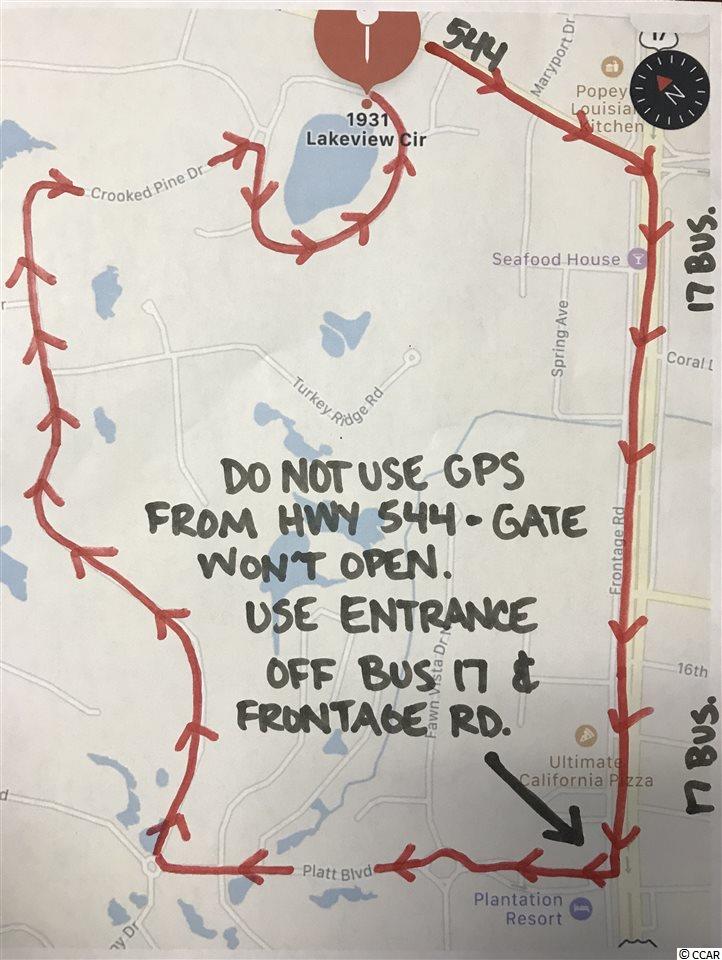 544
Maryport Dr
17
Popey
Louisia
Kitchen
1931
Lakeview Cir
Crooked Pine Dr
17 BUS.
Seafood House
Spring Ave
Coral L
Turkey Ridge Rd
DO NOT USE GPS
FROM HWY 544 - GATE
WON'T OPEN.
USE ENTRANCE
OFF BUS 17 &
FRONTAGE RD.
Frontage Rd
Fawn Vista Dr N
16th
17 BUS.
Ultimate
California Pizza
Platt Blvd
Plantation
Resort
ny Dr
© CCAR